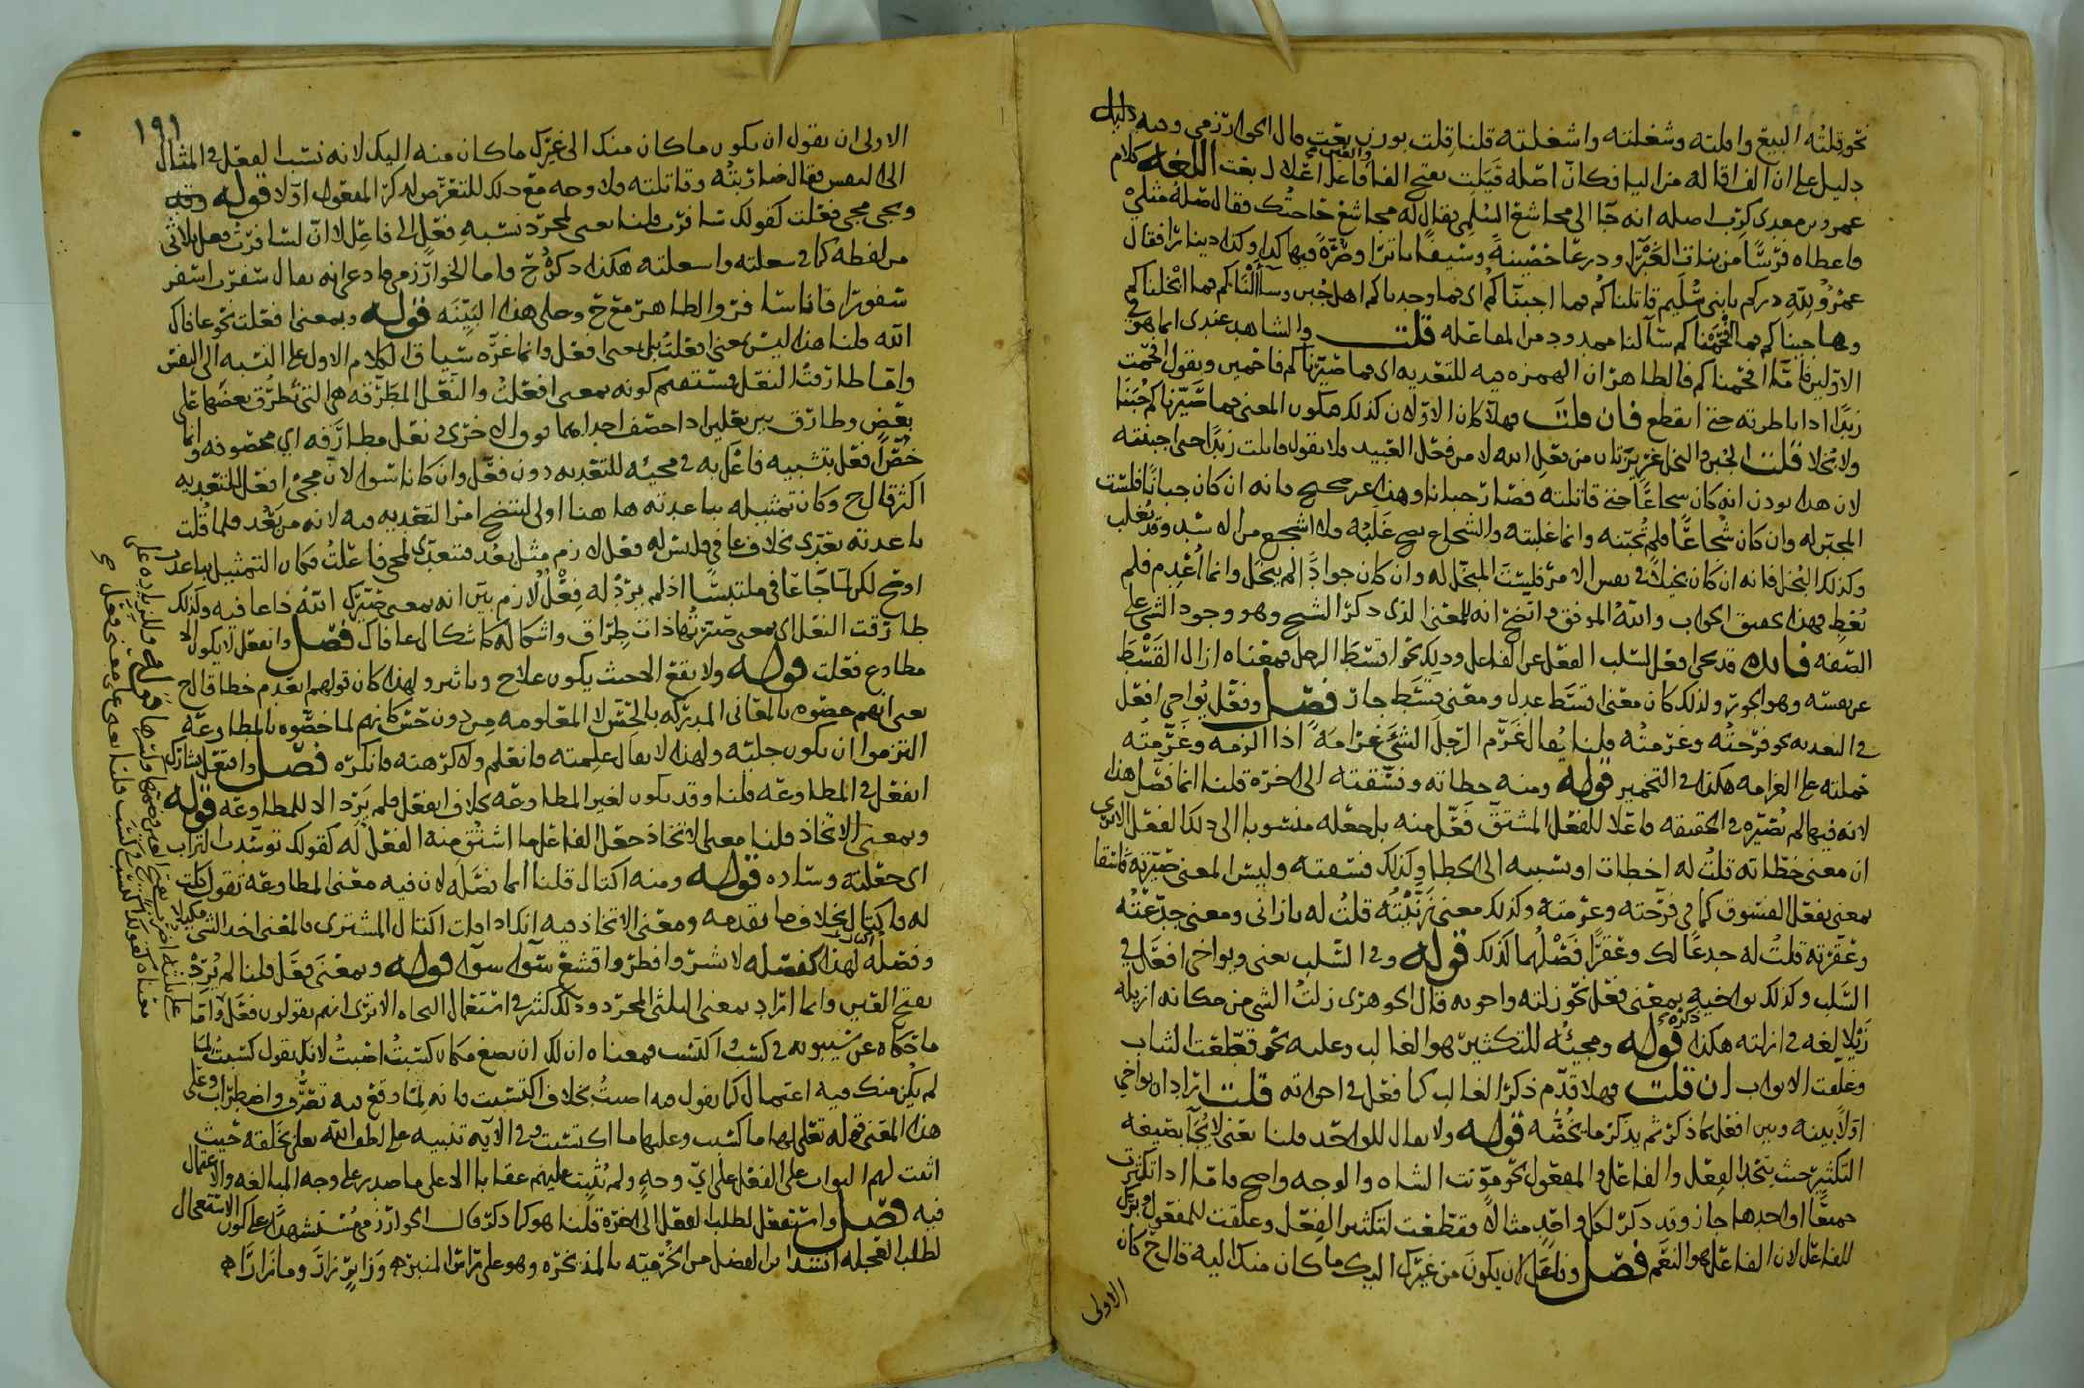 نحو قلته البيع واقلته وشغلته واشغلته قلنا قلت بوزن بعت قال الخوارزمي وفيه دليل
دليل على ان الف اقاله من اليا فكان اصله قيلت بفتح الفا فاعل اعلال بعت اللغه كلام
عمرو بن معدي كرب اصله انه جا الى مجاشع السلمي يقال له مجاشع فقال صلة مثلي
فاعطاه فرسا من بنات الغبرا ودرعا حصينة وسيفا باترا وصرة فيها كذا وكذا دينارا فقال
عمرو لله دركم يا بني سليم قاتلناكم فما اجبناكم اي فما وجدناكم اهل جبن وسالناكم فما ابخلناكم
وهاجيناكم فما افحمناكم سالنا ممدود من المفاعله قلت والشاهد عندي انما هو في
الاولين فاما افحمناكم فالظاهر ان الهمزه فيه للتعديه اي فما صيرناكم فاحمين ويقول افحمت
زيدا اذا ناظرته حتى انقطع فان قلت فهلا كان الاولان كذلك فيكون المعنى فما صيرناكم جبنا
ولا بخلا قلت الجبن والبخل غريزتان من فعل الله لا من فعل العبيد فلا يقول قاتلت زيدا حتى اجبنته
لان هذا يوذن انه كان شجاعا حتى قاتلته فصار جبانا وهذا غير صحيح فانه ان كان جبانا فلست
المجبن له وان كان شجاعا فلم تجبنه وانما غلبته والشجاع يصح غلبه فلا اشجع من الاسد وقد يغلب
وكذلك البخل فانه ان كان بخيلا في نفس الامر فليست المبخل له وان كان جوادا لم يبخل وانما اعدم فلم
يعط فهذا تحقيق الجواب والله الموفق واتضح انه للمعنى الذي ذكر الشيخ وهو وجود الشي على
الصفه فايده قد يجي افعل لسلب الفعل عن الفاعل وذلك نحو اقسط الرجل فمعناه ازال القسط
عن نفسه وهو الجور ولذلك كان معنى اقسط عدل ومعنى قسط جار فصل وفعل يواخي افعل
في التعديه نحو فرحته وغرمته قلنا يقال غرم الرجل الشي غرامة اذا الزمه وغرمته
حملته على الغرامه هكذا في التخمير قوله ومنه خطاته وفسقته الى اخره قلنا انما فصل هذا
لانه فيها لم تصيره في الحقيقه فاعلا للفعل المشتق فعل منه بل جعله منسوبا الى ذلك الفعل الا ترى
ان معنى خطاته قلت له اخطات او نسبه الى الخطا وكذلك فسقته وليس المعنى صيرته فاسقا
بمعنى يفعل الفسوق كما في فرحته وغرمته وكذلك معنى زنيته قلت له يا زاني ومعنى جدعته
وعقرته قلت له جدعا لك وعقرا فصلهما لذلك قوله وفي السلب يعني ويواخي افعل في
السلب وكذلك يواخيه بمعنى فعل نحو زلته واخوه قال الجوهري زلت الشي من مكانه ازيله
زيلا لغه في ازلته هكذا ذكره قوله ومجيئه للتكثير هو الغالب وعليه نحو قطعت الثياب
وغلقت الابواب ان قلت فهلا قدم ذكر الغالب كما فعل في اخواته قلت اراد ان يواخي
اولا بينه وبين افعل بما ذكر ثم يذكر ما يخصه قوله ولا يقال للواحد قلنا يعني لا يجا بصيغه
التكثير حيث يتحد الفعل والفاعل والمفعول نحو موتت الشاه والوجه واضح فاما اذا تكثرت
جميعا او احدها جاز وقد ذكر لكل واحد مثالا فقطعت لتكثير الفعل وغلقت للمفعول
للفاعل لان الفاعل هو النعم فصل وفاعل لان يكون من غيرك اليك ما كان منك اليه قال ح كان
الاولى
١٩١
الاولى ان يقول ان يكون ما كان منك الى غيرك ما كان منه اليك لانه نسب الفعل في المثال
الى النفس فقال ضاربته وقاتلته فلا وجه مع ذلك للتعرض لذكر المفعول اولا قوله وقد
ويجي مجي فعلت كقولك سافرت قلنا يعني لمجرد نسبه فعل الى فاعل لا ان لسافرت فعل ثلاثي
من لفظه كما في شغلته واشغلته هكذا ذكره ح واما الخوارزمي فادعى انه يقال سفرت اسفر
سفورا فانا سافر والظاهر مع ح وعلى هذا البينه قوله وبمعنى افعلت نحو عافاك
الله قلنا هذا ليس بمعنى افعلت بل بمعنى افعل وانما غره سياق الكلام الاول على النسبه الى النفس
واما طارقت النعل فيستقيم كونه بمعنى افعلت والنعل المطرقه هي التي يطرق بعضها على
بعض وطارق بين نعلين اذا خصف احداهما فوق الاخرى ونعل مطارقه اي مخصوفه وانما
خص افعل بتشبيه فاعل به في مجيئه للتعديه دون فعل وان كانا سوا لان مجي افعل للتعديه
اكثر قال ح وكان تمثيله بباعدته هاهنا اولى ليتضح امر التعديه فيه لانه من بعد فلما قلت
باعدته تعدى بخلاف عافى فليس له فعل لازم مثل بعد فتعدى لمجي فاعلت فكان التمثيل بباعدت
اوضح لكن لما جا عافى ملتبسا اذ لم يرد له فعل لازم بين انه بمعنى صيرك الله ذا عافيه وكذلك
طارقت النعل اي بمعنى صيرتها ذات طراق واشكاله كاشكال عافاك فصل وانفعل لا يكون الا
مطاوع فعلت قوله ولا يقع الا حيث يكون علاج وتاثير ولهذا كان قولهم انعدم خطا قال ح
يعني انهم خصوه بالمعاني المدركه بالحس لا المعلومه من دون حس كانهم لما خصوه بالمطاوعه
التزموا ان يكون جليه ولهذا لا يقال علمته فانعلم ولا كرهته فانكره فصل وافتعل يشارك
انفعل في المطاوعه قلنا وقد يكون لغير المطاوعه بخلاف انفعل فلم يرد الا للمطاوعه قوله
وبمعنى الاتخاذ قلنا معنى الاتخاذ جعل الفاعل ما اشتق منه الفعل له كقولك توسدت التراب
اي جعلته وساده قوله ومنه اكتال قلنا انما فصله لان فيه معنى المطاوعه تقول كلت
له فاكتال بخلاف ما تقدمه ومعنى الاتخاذ فيه انك اذا قلت اكتال المشتري فالمعنى اخذ الشي مكيلا
وفصله لهذا كفصله لانشر وافطر واقشع سوا سوا قوله وبمعنى فعل قلنا لم يرد
بفتح العين وانما اراد بمعنى الثلاثي المجرد وذلك كثير في استعمال النحاه الا ترى انهم يقولون فعل واما
ما حكاه عن سيبويه في كسب اكتسب فمعناه ان لك ان تضع مكان كسبت اصبت لانك تقول كسبت لما
لم يكن منك فيه اعتمال كما يقول فيه اصبت بخلاف اكتسبت فانه لما وقع فيه تصرف واضطراب وعلى
هذا المعنى قوله تعلى لها ما كسبت وعليها ما اكتسبت وفي الايه تنبيه على لطف الله تعلى بخلقه حيث
اثبت لهم الثواب على الفعل على اي وجه ولم يثبت عليهم عقابا الا على ما صدر على وجه المبالغه والاعتمال
فيه فصل واستفعل لطلب الفعل الى اخره قلنا هو كما ذكر قال الخوارزمي مستشهدا على كون الاستفعال
لطلب العجله انشدنا ابن الفضل من الخرميه بالمذخره وهو على راس المنبر وزاير زار وما زارا